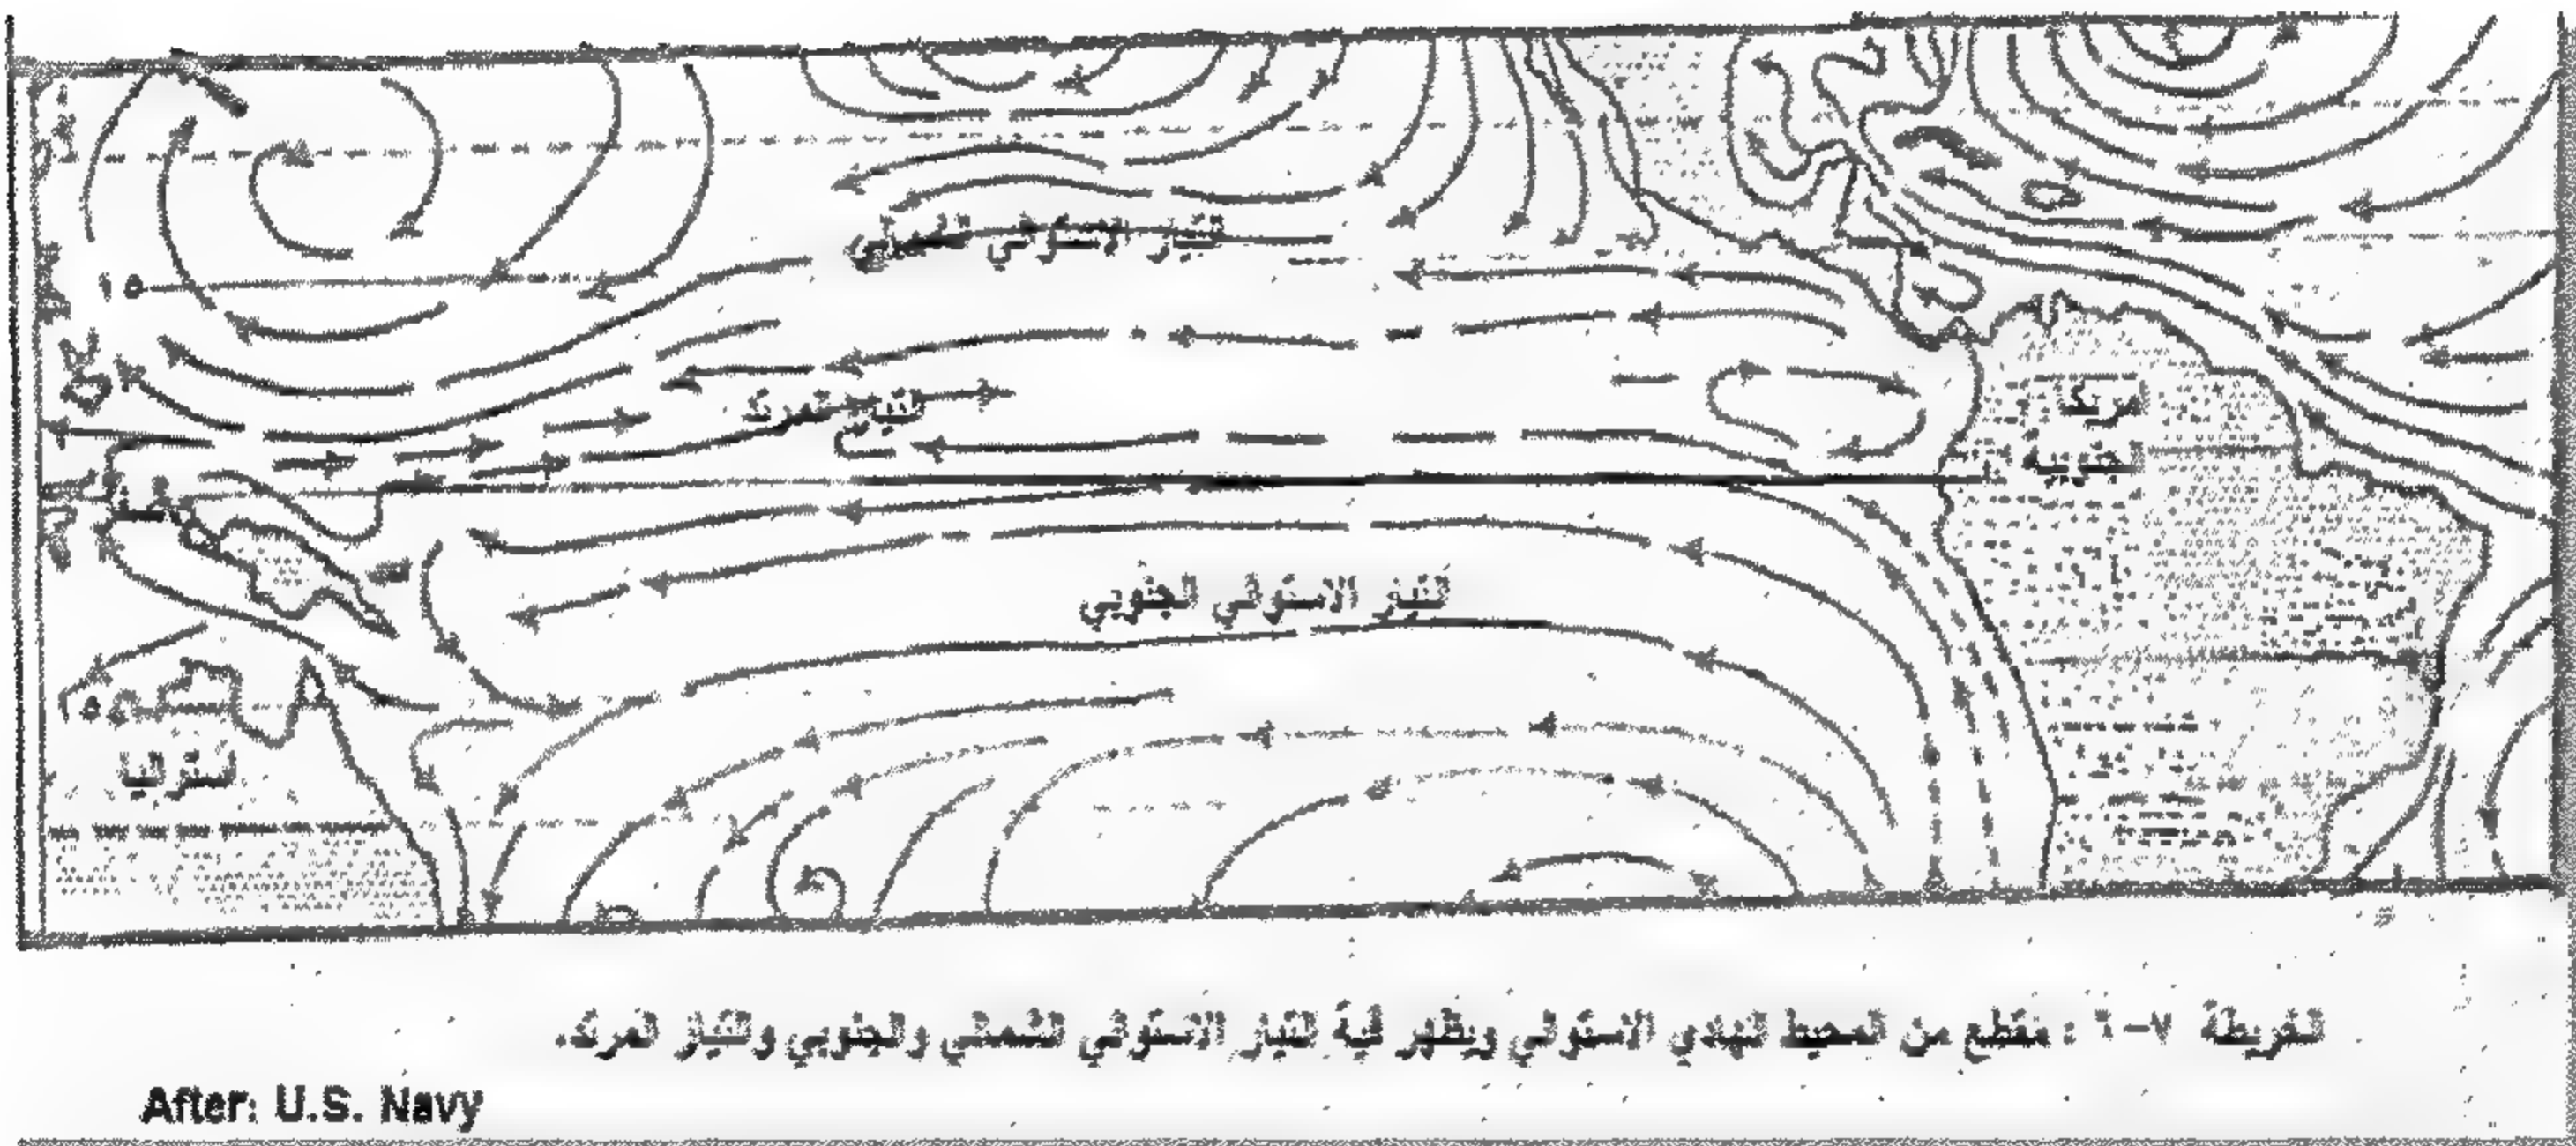 التيار الاستوائي الشمالي
١٥
التيار المرتد
أمريكا
الجنوبية
التيار الاستوائي الجنوبي
استراليا
الخريطة ٧-٦ : مقطع من المحيط الهادي الاستوائي ويظهر فية التيار الاستوائي الشمالي والجنوبي والتيار المرتد.
After: U.S. Navy